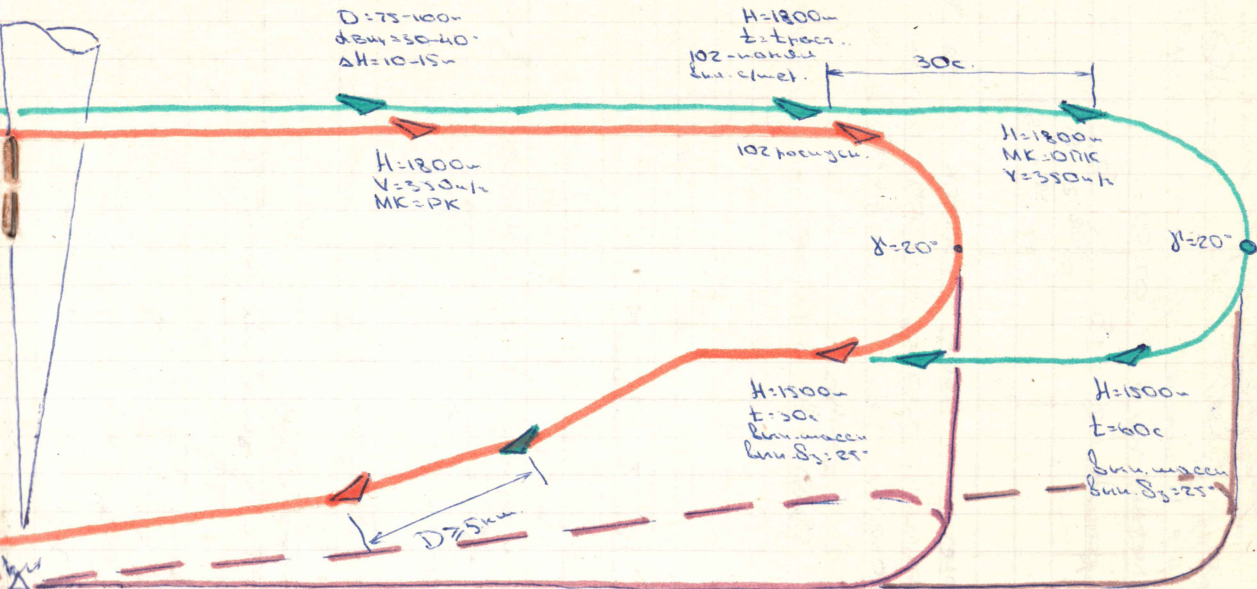 D=75-100м
αвиз=30-40°
ΔH=10-15м
H=1800м
t=tраст.
102-понял
вкл. с/мет.
30с.
H=1800м
V=350м/ч
МК=РК
102 роспуск.
H=1800м
МК=ОПК
V=350м/ч
γ=20°
γ=20°
H=1500м
t=30с
вып. шасси
вып. δз=25°
H=1500м
t=60с
вып. шасси
вып. δз=25°
D≥5км.